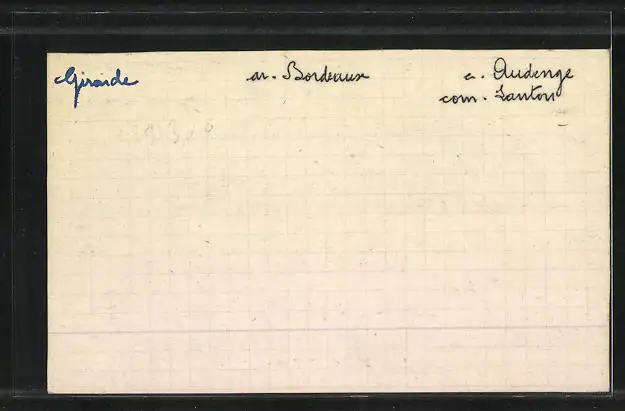 Gironde
ar. Bordeaux
c. Audenge
com. Lanton